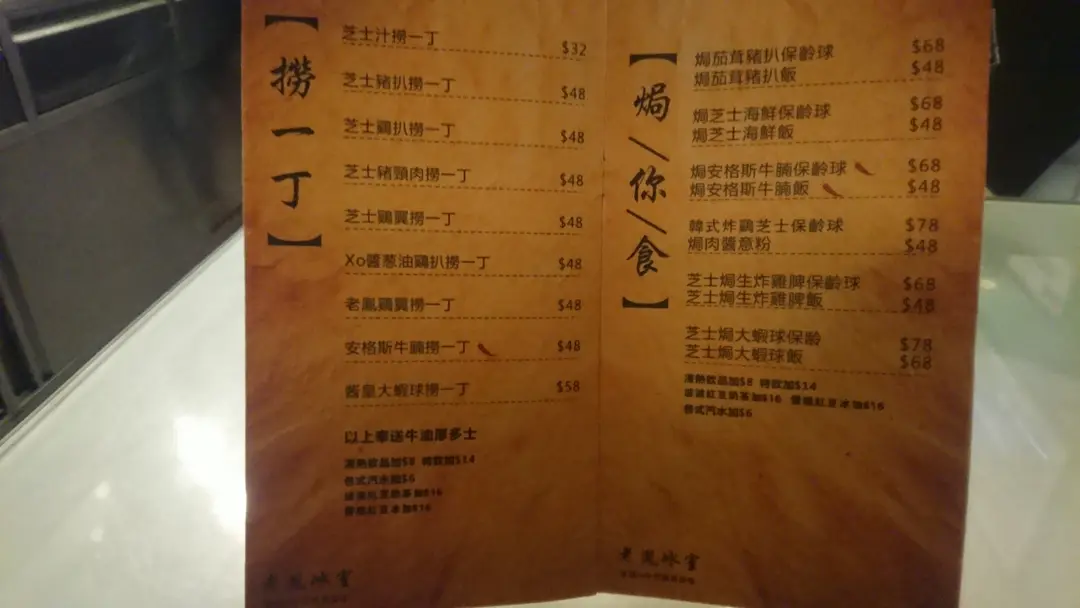 【撈一丁】
芝士汁撈一丁 $32
芝士豬扒撈一丁 $48
芝士鷄扒撈一丁 $48
芝士豬頸肉撈一丁 $48
芝士鷄翼撈一丁 $48
Xo醬葱油鷄扒撈一丁 $48
老鳳鷄翼撈一丁 $48
安格斯牛腩撈一丁 $48
醬皇大蝦球撈一丁 $58
以上奉送牛油厚多士
凍熱飲品加$8 特飲加$14
各式汽水加$6
紅豆奶茶加$16
紅豆冰加$16
老鳳冰室
【焗/你/食】
焗茄茸豬扒保齡球 $68
焗茄茸豬扒飯 $48
焗芝士海鮮保齡球 $68
焗芝士海鮮飯 $48
焗安格斯牛腩保齡球 $68
焗安格斯牛腩飯 $48
韓式炸鷄芝士保齡球 $78
焗肉醬意粉 $48
芝士焗生炸雞脾保齡球 $68
芝士焗生炸雞脾飯 $48
芝士焗大蝦球保齡 $78
芝士焗大蝦球飯 $68
凍熱飲品加$8 特飲加$14
紅豆奶茶加$16 紅豆冰加$16
各式汽水加$6
老鳳冰室